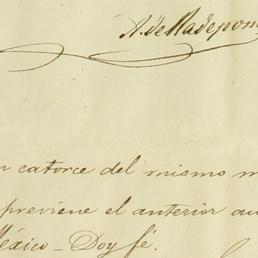 A. de Radepon
n catorce del mismo m
previene el anterior au
México - Doy fé.